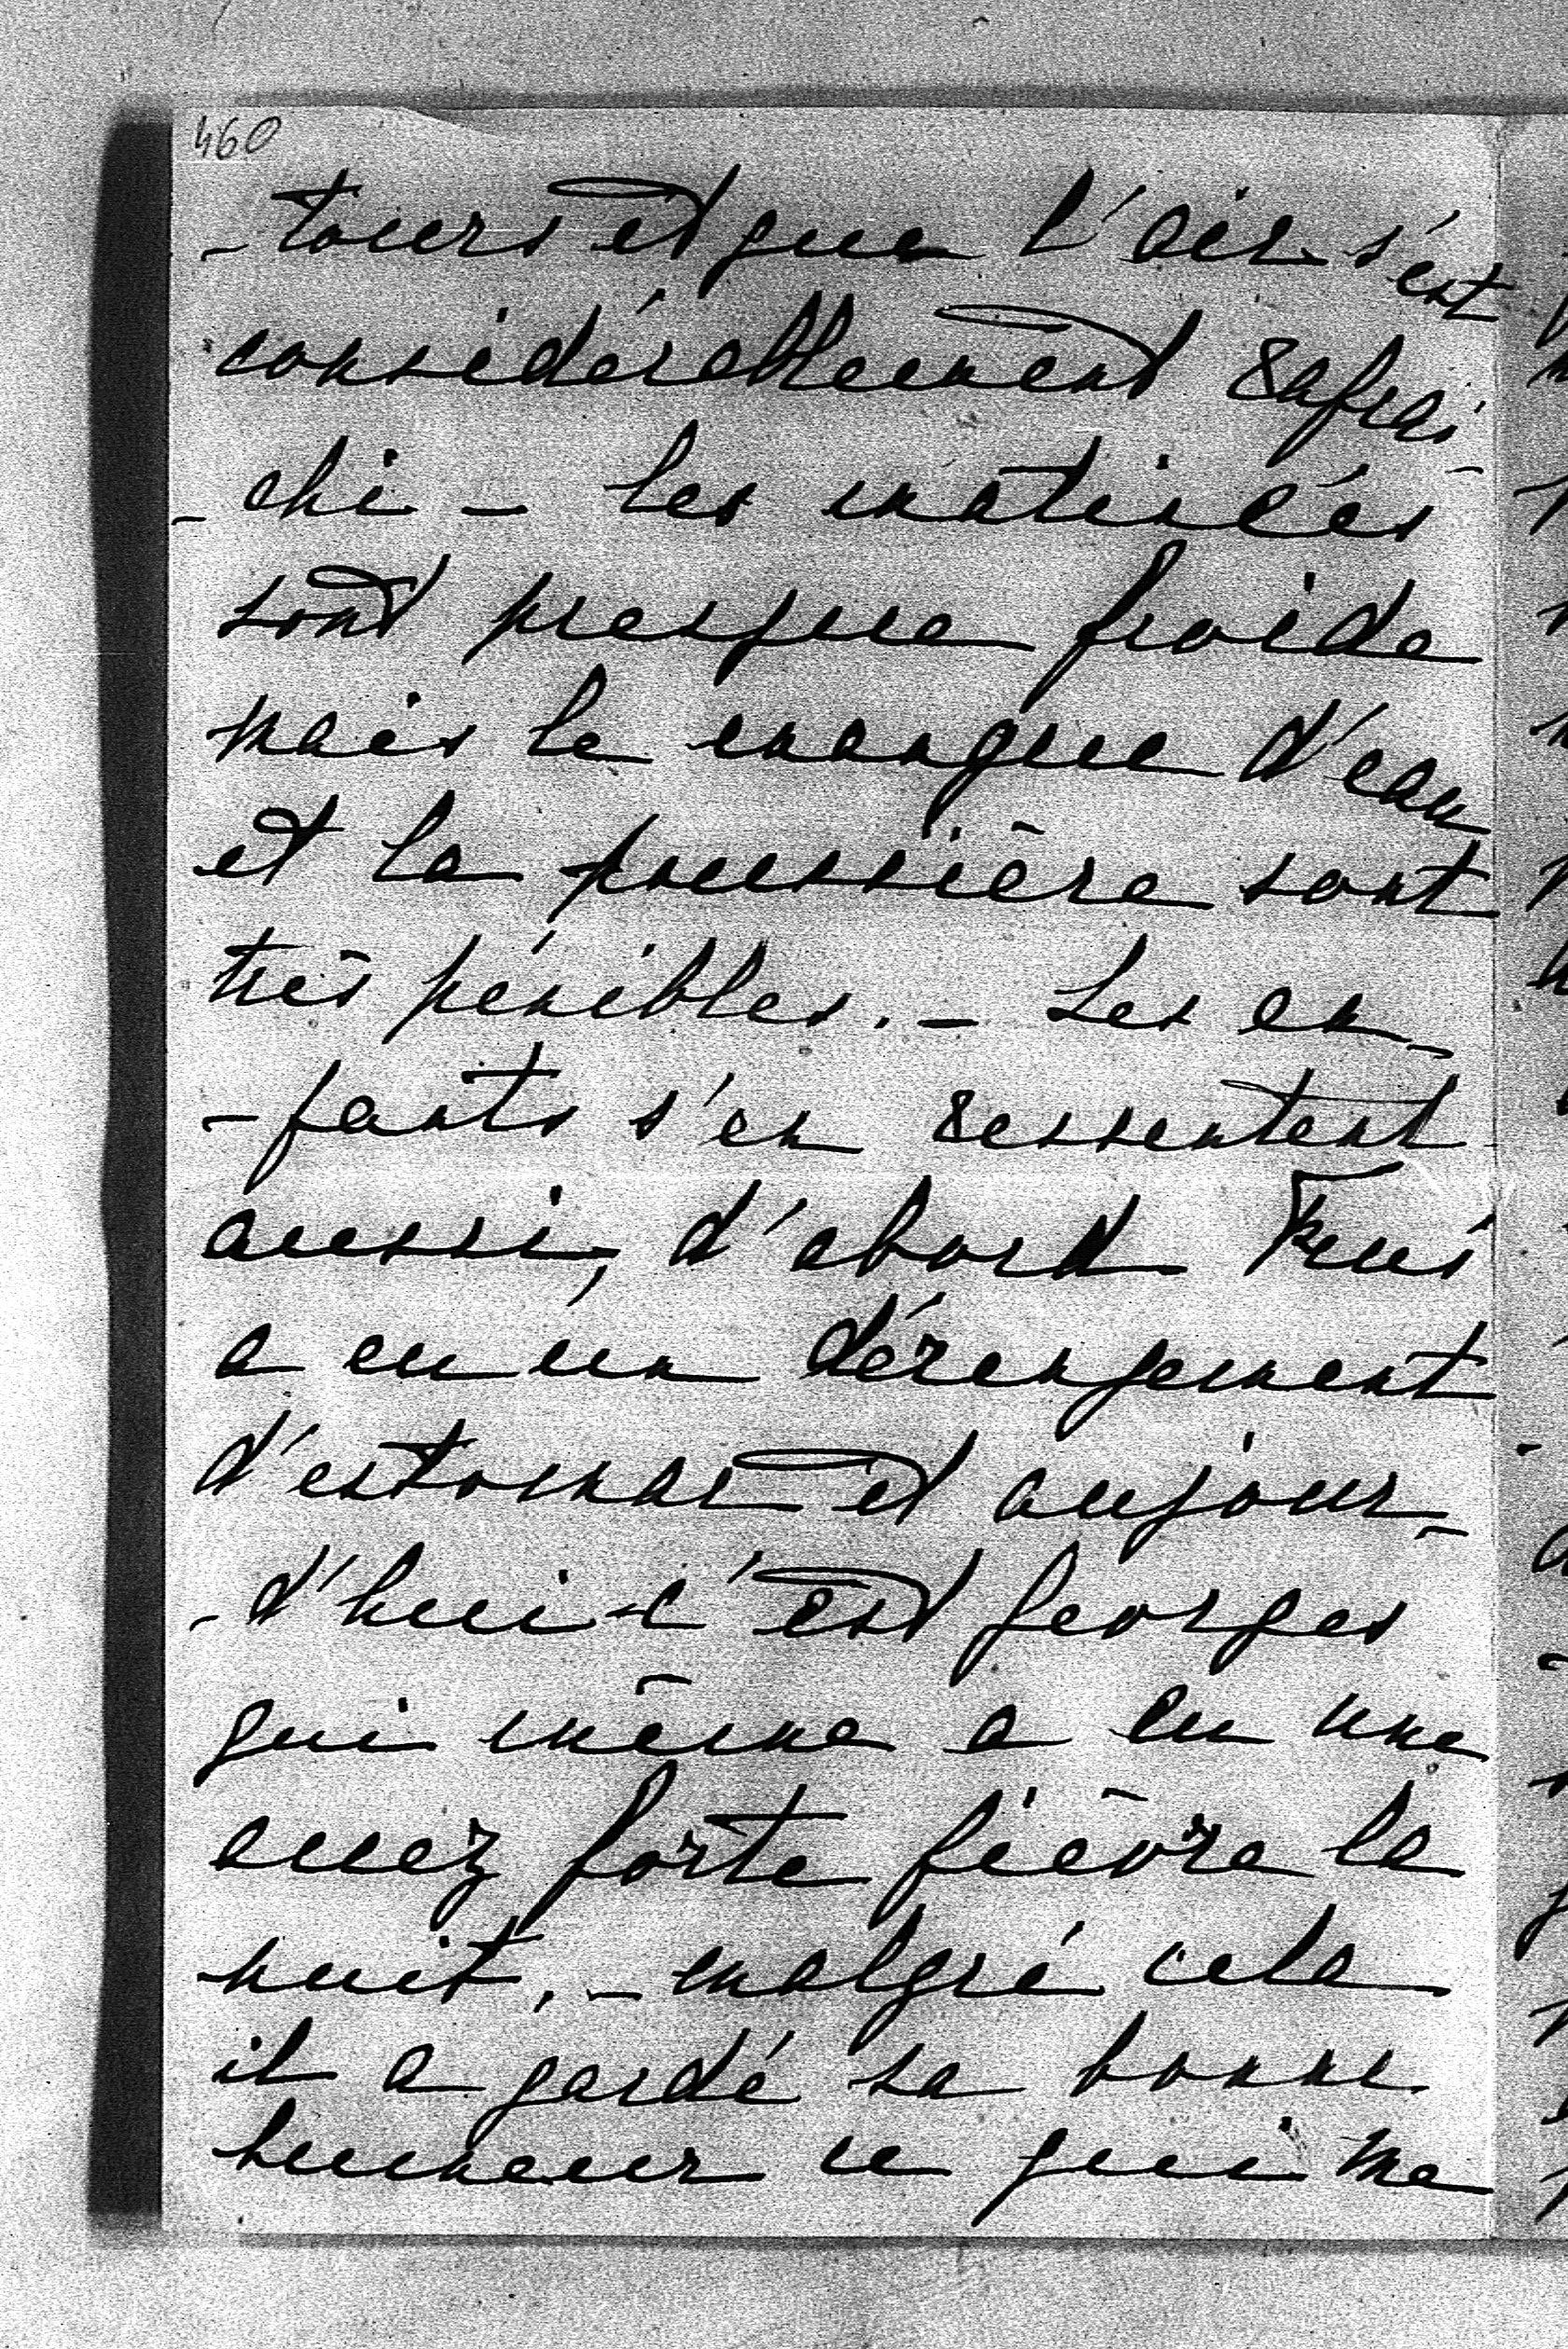 460
- tours et que l'air s'est
considérablement rafraî-
- chi - les matinées
sont presque froide
mais le manque d'eau
et la poussière sont
très pénibles. - Les en-
- fants s'en ressentent
aussi, d'abord
a eu un dérengement
d'estomac et aujour-
- d'hui c'est Georges
qui même a eu une
assez forte fièvre la
nuit. - malgré cela
il a gardé sa bonne
humeur ce qui me